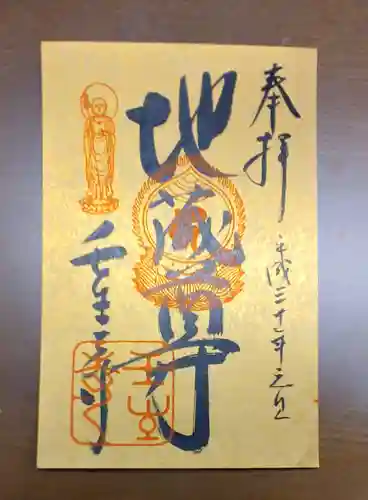 奉拝
平成三十一年元旦
地蔵尊
壬生寺